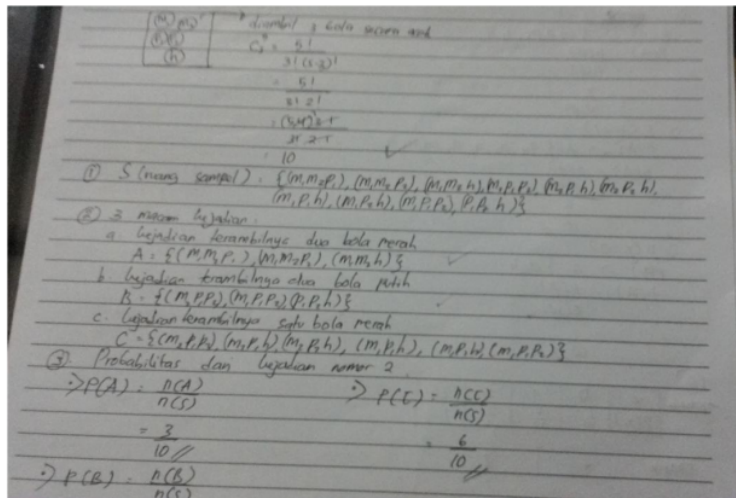 (m₁) (m₂) diambil 3 bola secara acak
(P₁) (P₂)
(h)
C₃⁵ = 5!
3! (5-3)!
= 5!
3! 2!
= (5.4) 3!
3! 2!
= 10
① S (ruang sampel) = {(m₁m₂P₁), (m₁m₂P₂), (m₁m₂h), (m₂P₁P₂), (m₂P₁h), (m₂P₂h),
(m₁P₁h), (m₁P₂h), (m₁P₁P₂), (P₁P₂h)}
② 3 macam kejadian.
a. kejadian terambilnya dua bola merah
A = {(m₁m₂P₁), (m₁m₂P₂), (m₁m₂h)}
b. kejadian terambilnya dua bola putih
B = {(m₂P₁P₂), (m₁P₁P₂), (P₁P₂h)}
c. kejadian terambilnya satu bola merah
C = {(m₂P₁P₂), (m₂P₁h), (m₂P₂h), (m₁P₁h), (m₁P₂h), (m₁P₁P₂)}
③ Probabilitas dari kejadian nomor 2
:> P(A) = n(A) :> P(C) = n(C)
n(S) n(S)
= 3 = 6
10 // 10 //
:> P(B) = n(B)
n(S)